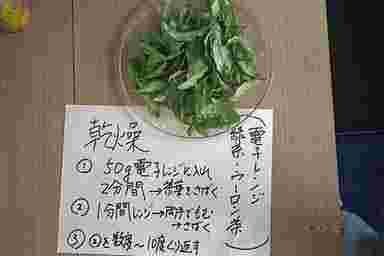 乾燥
（電子レンジ
緑茶・ウーロン茶）
① 50g電子レンジに入れ
2分間→葉をさばく
② 1分間レンジ→両手でもむ
→さばく
③ ②を数度～10度くり返す